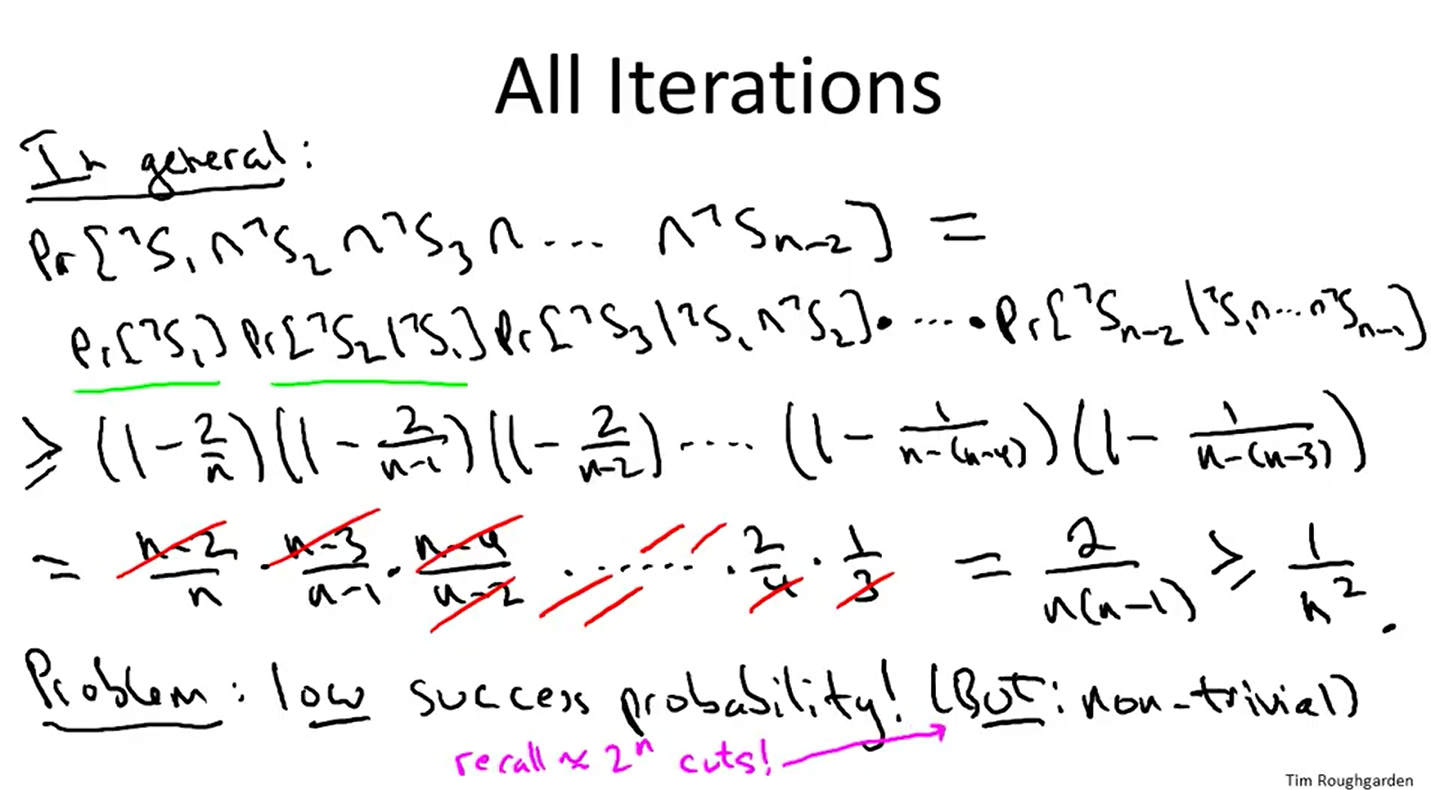 All Iterations
In general:
Pr[¬S₁∩¬S₂∩¬S₃∩.... ∩¬Sₙ₋₂] =
Pr[¬S₁] Pr[¬S₂|¬S₁] Pr[¬S₃|¬S₁∩¬S₂]•....•Pr[¬Sₙ₋₂|¬S₁∩...∩¬Sₙ₋₁]
≥ (1-2/n)(1-2/(n-1))(1-2/(n-2)).....(1-1/(n-(n-4)))(1-1/(n-(n-3)))
= (n-2)/n · (n-3)/(n-1) · (n-4)/(n-2) · ........ · 2/4 · 1/3 = 2/(n(n-1)) ≥ 1/n².
Problem: low success probability! (But: non-trivial)
recall ≈ 2ⁿ cuts!
Tim Roughgarden